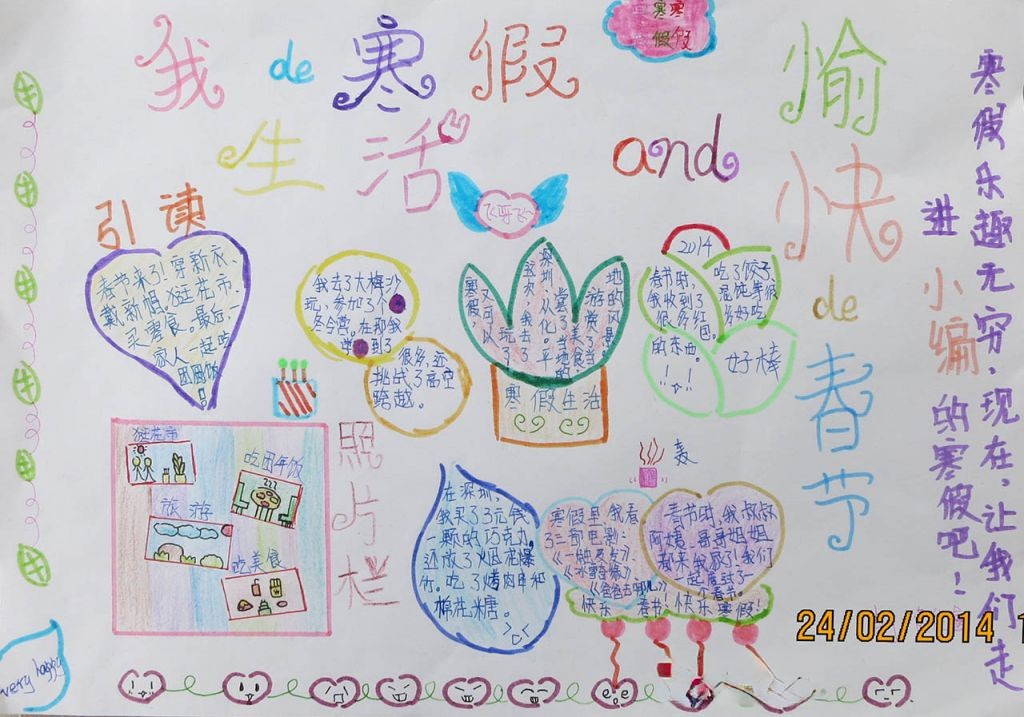 寒寒
假假
我de寒假
生活
and
愉快de春节
寒假乐趣无穷,现在,让我们走
进小编的寒假吧!
飞呀飞~
引读
春节来了!穿新衣、
戴新帽、逛花市、
买零食。最后,一
家人一起吃
团圆饭!
我去了大梅沙
玩,参加了个
冬令营。在那我
学到了
很多,还
挑战了高空
跨越。
寒假
又可以
深圳
这次
我去了
从化。平
尝了
当地的
美食
游赏了
当地的风景
寒假生活
2014
春节时,
我收到了
很多红包。
吃了饺子、
混饨等很
多好吃
的东西!
!!
好棒
照片栏
逛花市
吃团年饭
旅游
吃美食
在深圳,
我买了3元钱
一颗的巧克力。
还放了烟花爆
竹。吃了烤肉串和
棉花糖。
轰
寒假里,我看
了三部电影:
春节时,我叔叔
阿姨、哥哥姐姐
都来我家了!我们
一起度过了一
个春节。
快乐春节!快乐寒假!
very happy
24/02/2014